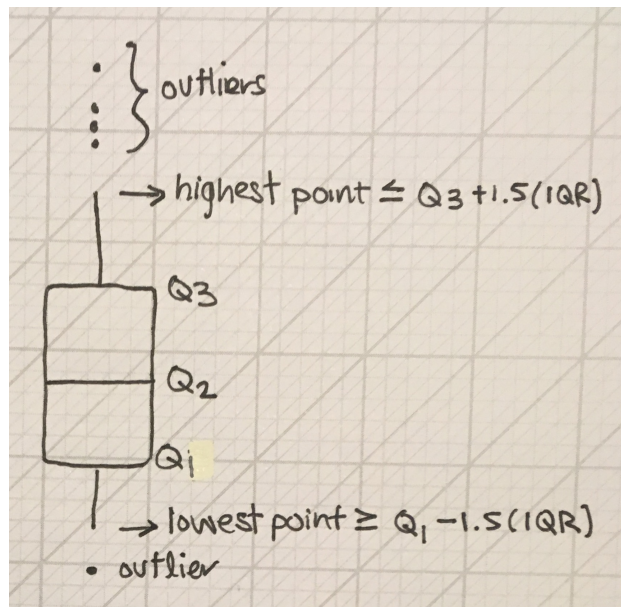 outliers
highest point ≤ Q3+1.5(IQR)
Q3
Q2
Q1
lowest point ≥ Q1-1.5(IQR)
outlier